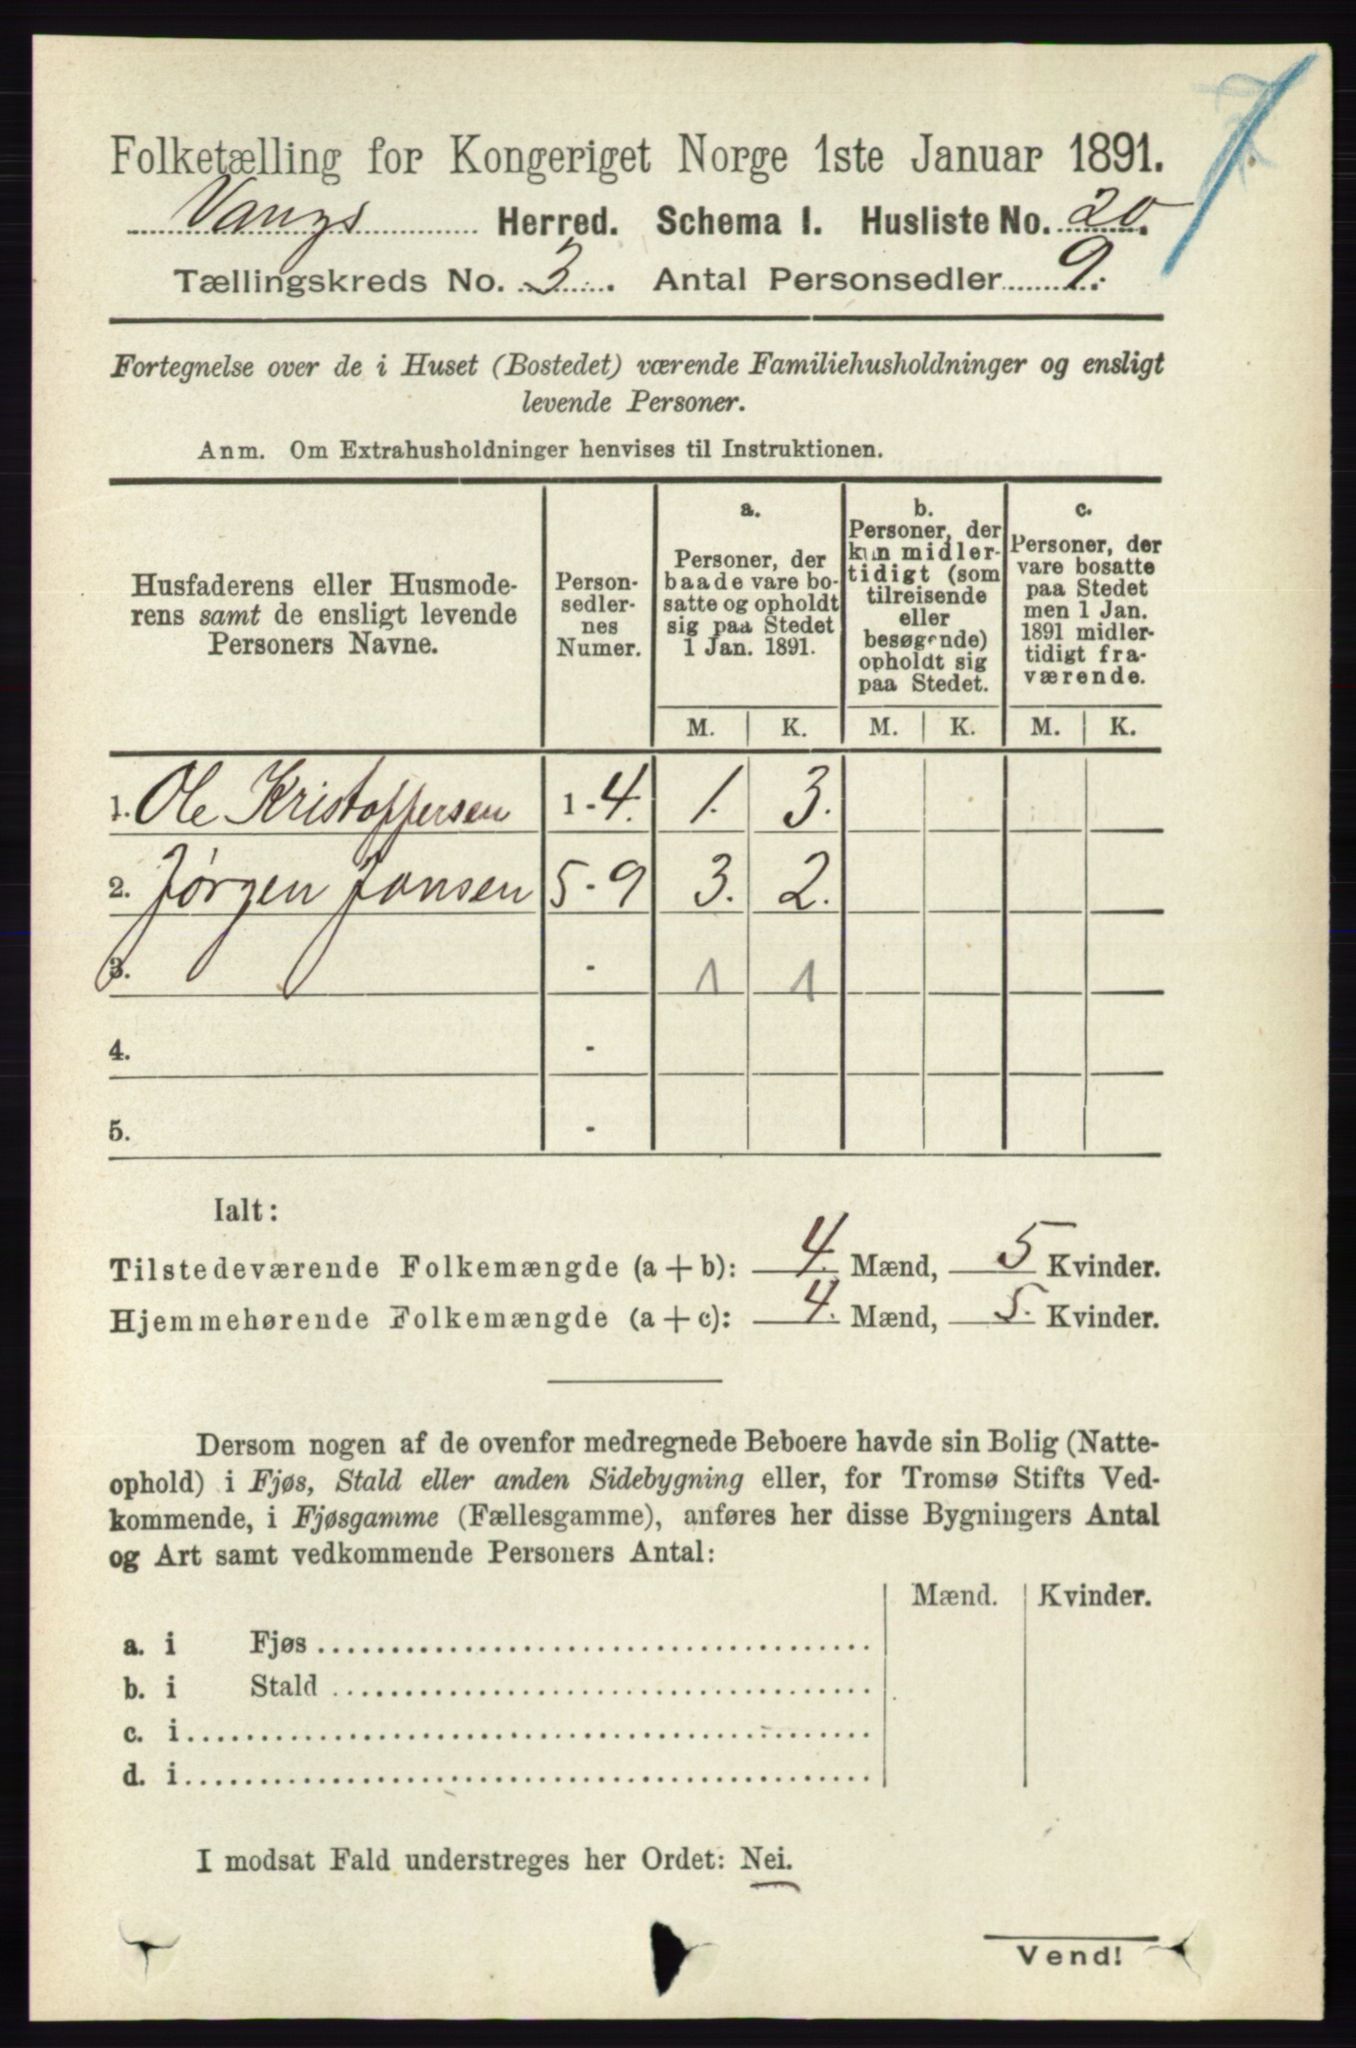 Folketælling for Kongeriget Norge 1ste Januar 1891.
Vangs Herred. Schema I. Husliste No. 20.
Tællingskreds No. 3. Antal Personsedler 9.
Fortegnelse over de i Huset (Bostedet) værende Familiehusholdninger og ensligt
levende Personer.
Anm. Om Extrahusholdninger henvises til Instruktionen.
Husfaderens eller Husmode-
rens samt de ensligt levende
Personers Navne.
Person-
sedler-
nes
Numer.
a.
Personer, der
baade vare bo-
satte og opholdt
sig paa Stedet
1 Jan. 1891.
b.
Personer, der
kun midler-
tidigt (som
tilreisende
eller
besøgende)
opholdt sig
paa Stedet.
c.
Personer, der
vare bosatte
paa Stedet
men 1 Jan.
1891 midler-
tidigt fra-
værende.
M. K. M. K. M. K.
1. Ole Kristoffersen 1-4. 1. 3.
2. Jørgen Jonsen 5-9 3. 2.
3. - 1 1
4. -
5. -
Ialt:
Tilstedeværende Folkemængde (a+b): 4. Mænd, 5 Kvinder.
Hjemmehørende Folkemængde (a+c): 4. Mænd, 5. Kvinder.
Dersom nogen af de ovenfor medregnede Beboere havde sin Bolig (Natte-
ophold) i Fjøs, Stald eller anden Sidebygning eller, for Tromsø Stifts Ved-
kommende, i Fjøsgamme (Fællesgamme), anføres her disse Bygningers Antal
og Art samt vedkommende Personers Antal:
Mænd. Kvinder.
a. i Fjøs
b. i Stald
c. i
d. i
I modsat Fald understreges her Ordet: Nei.
Vend!